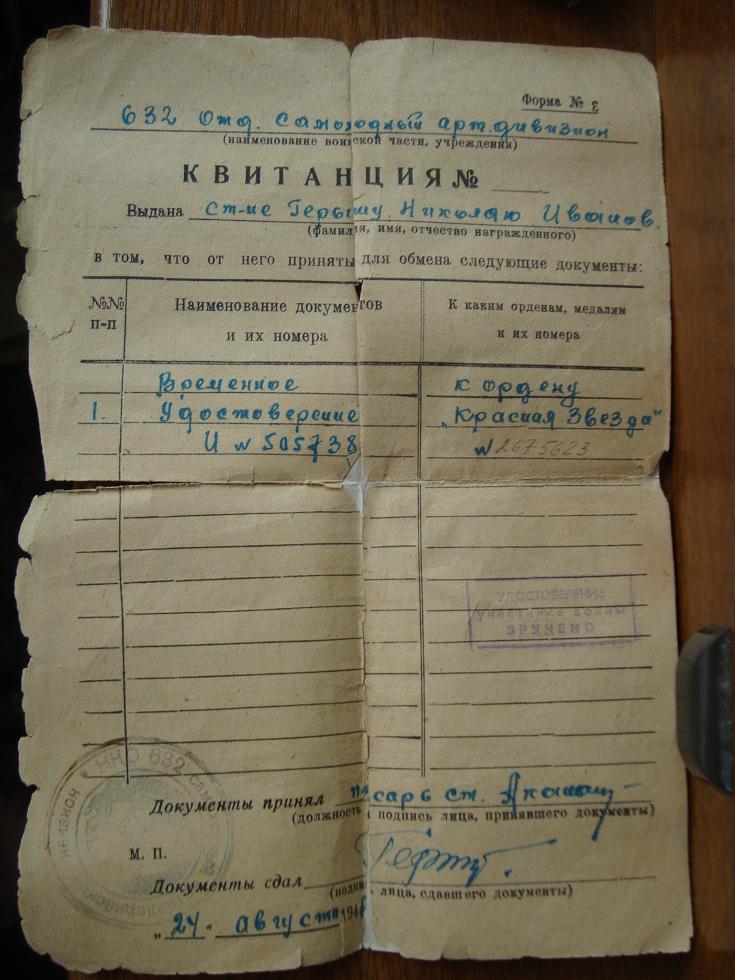 Форма № ε
632 Отд. Самоходный арт. дивизион
(наименование воинской части, учреждения)
КВИТАНЦИЯ №
Выдана ст-це Герышу. Николаю Иванов.
(фамилия, имя, отчество награжденного)
в том, что от него приняты для обмена следующие документы:
№№ п-п Наименование документов и их номера К каким орденам, медалям и их номера
Временное к ордену
1. Удостоверение „Красная Звезда"
И № 505738 № 2675623
УДОСТОВЕРЕНИЕ
участника войны
ВРУЧЕНО
НКО 632
Документы принял писарь ст.
(должность и подпись лица, принявшего документы)
М. П.
Документы сдал
(подпись лица, сдавшего документы)
„24" августа 194